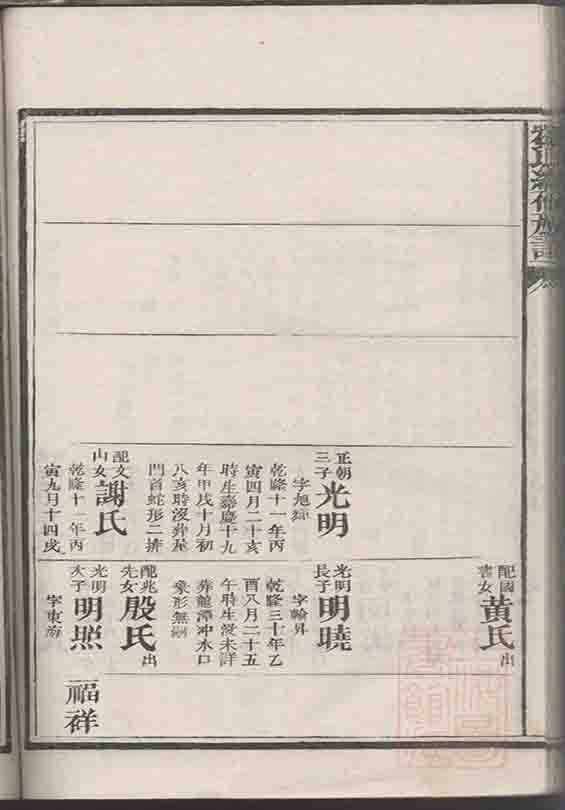 正朝
三子
光明
字旭綵
乾隆十一年丙
寅四月二十亥
時生嘉慶十九
年甲戌十月初
八亥時沒葬屋
門首蛇形二排
配文
山女
謝氏
乾隆十一年丙
寅九月十四戌
配國
黄氏
出
光明
長子
明曉
字翰昇
乾隆三十年乙
酉八月二十五
午時生沒未詳
葬龍潭冲水口
象形無嗣
配兆
先女
殷氏
出
光明
次子
明照
福祥